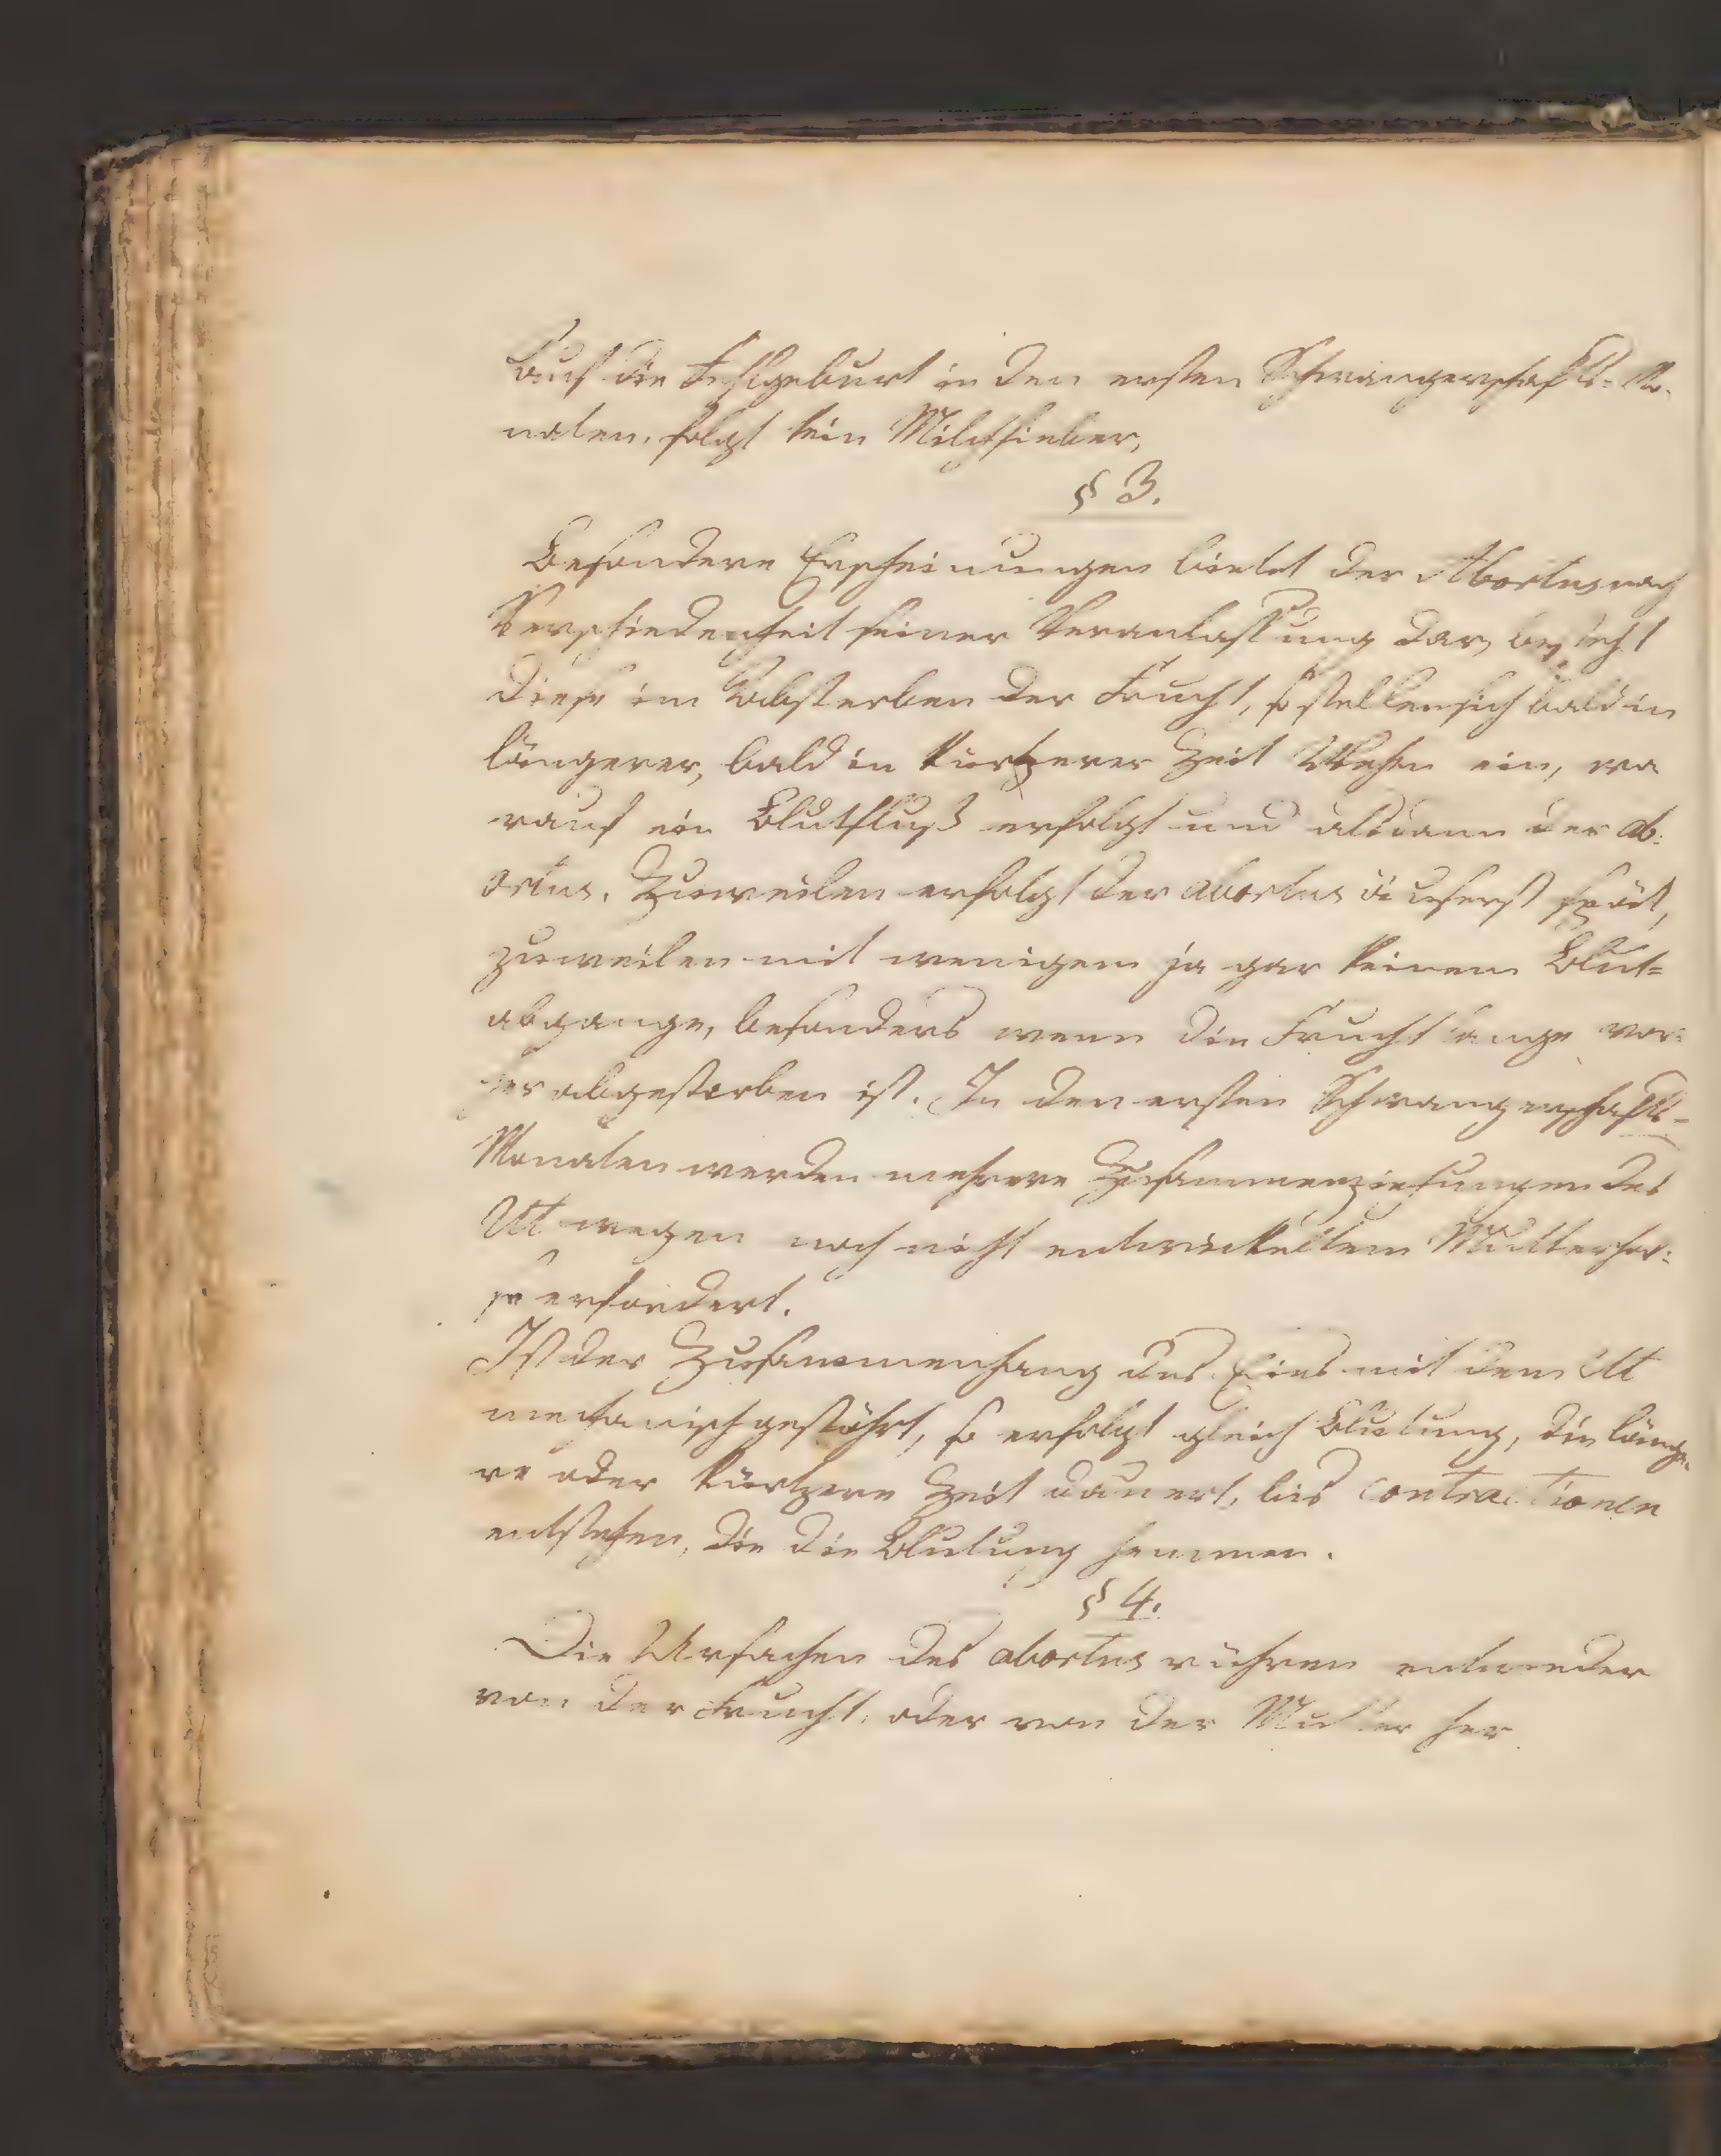 Auf die Fehlgeburt in den ersten Schwangerschafts-Mo-
naten, folgt kein Milchfieber,
§ 3.
Besondere Erscheinungen bietet der Abortus nach
Verschiedenheit seiner Veranlassung dar, besteht
diese im Absterben der Frucht, so stellen sich bald in
längerer, bald in kurtzerer Zeit Wehen ein, wo
rauf ein Blutfluß erfolgt und alsdann der ab-
ortus. Zuweilen erfolgt der abortus äuserst spät,
zuweilen mit wenigem ja gar keinem Blut=
abgange, besonders wenn die Frucht lange vor-
her abgestorben ist. In den ersten Schwangerschafts-
Monaten werden mehrere Zusammenziehungen des
Ut wegen noch nicht entwickeltem Mutterhal-
se erfordert.
Ist der Zusammenhang des Eies mit dem Ut
mechanisch gestöhrt, so erfolgt gleich Blutung, die länge-
re oder kürtzere Zeit dauert, bis Contractionen
entstehen, die die Blutung hemmen.
§ 4.
Die Ursachen des abortus rühren entweder
von der Frucht, oder von der Mutter her